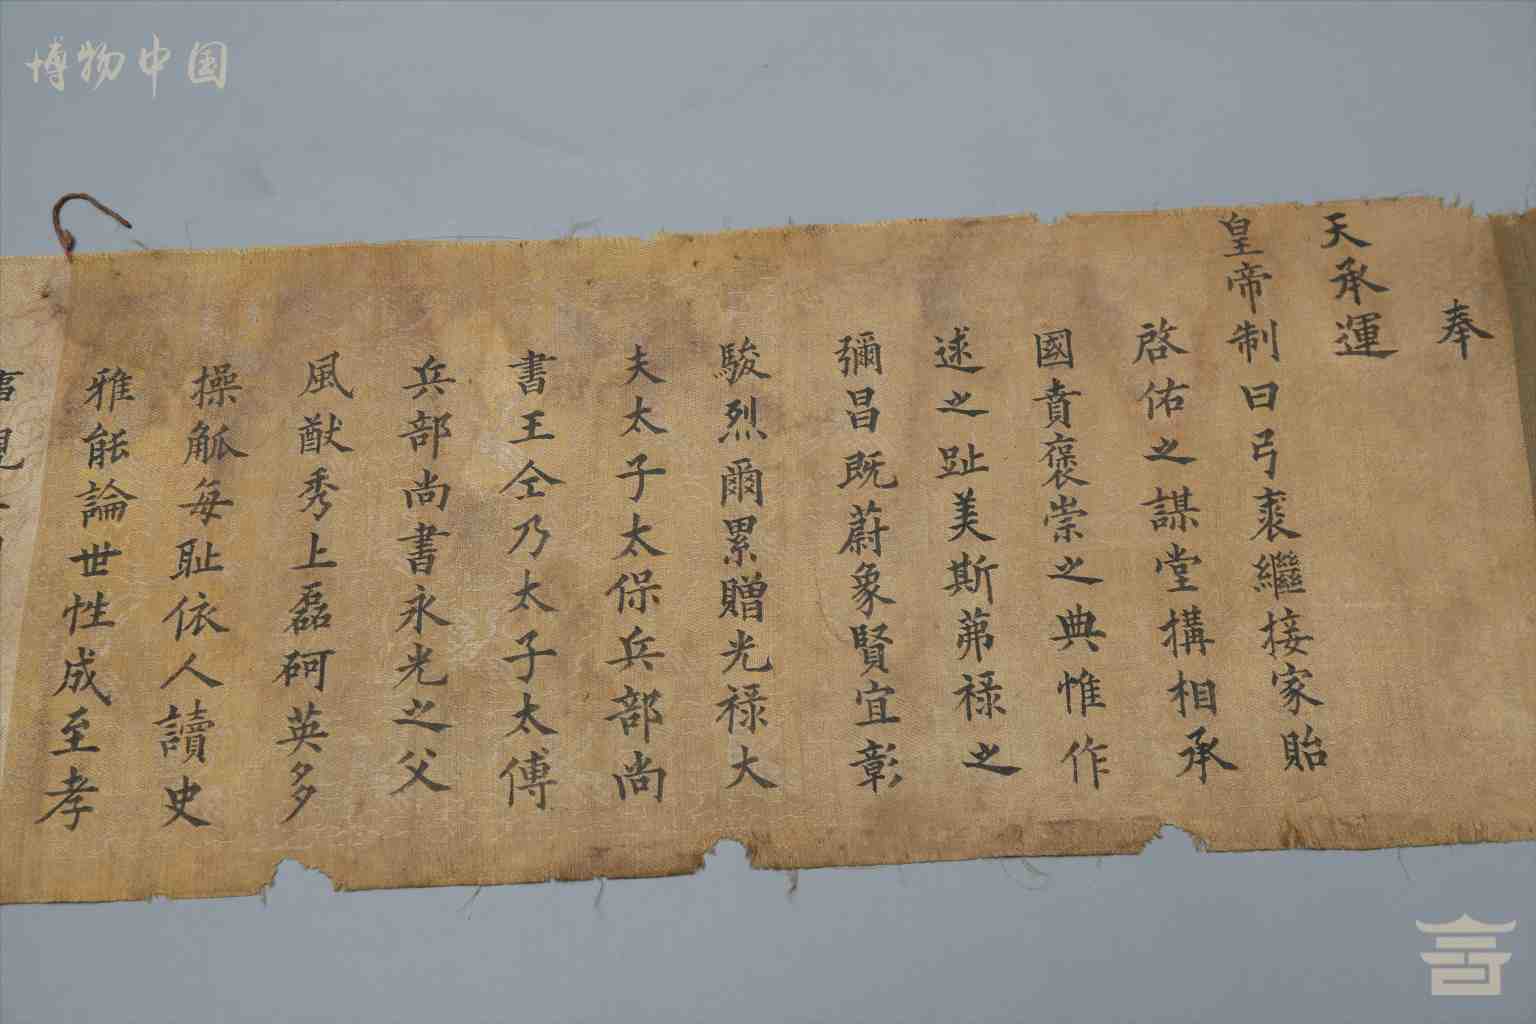 博物中国
奉
天承運
皇帝制曰弓裘繼接家貽
啓佑之謀堂搆相承
國賁褒崇之典惟作
逑之趾美斯茀禄之
彌昌既蔚象賢宜彰
駿烈爾累贈光禄大
夫太子太保兵部尚
書王仝乃太子太傅
兵部尚書永光之父
風猷秀上磊砢英多
操觚每耻依人讀史
雅能論世性成至孝